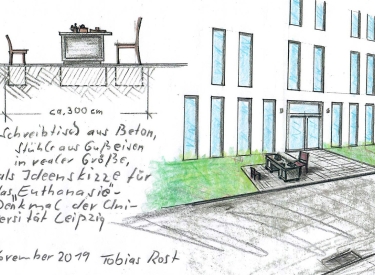 ca. 300 cm
Schreibtisch aus Beton,
Stühle aus Gußeisen
in realer Größe,
als Ideenskizze für
das "Euthanasie"-
Denkmal der Uni-
versität Leipzig
November 2019 Tobias Rost